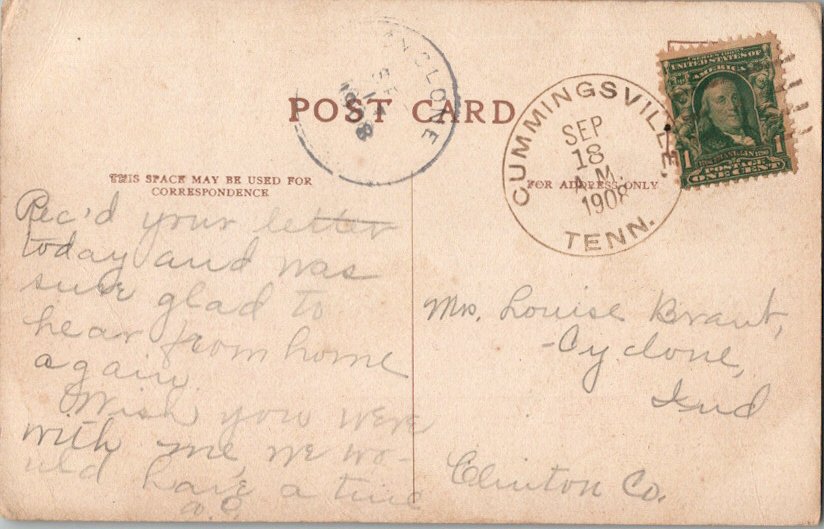 POST CARD
THIS SPACE MAY BE USED FOR
CORRESPONDENCE
FOR ADDRESS ONLY
CUMMINGSVILLE,
SEP
18
A.M.
1908
TENN.
UNITED STATES OF
AMERICA
1 1
POSTAGE
ONE CENT
Rec'd your letter
today and was
sure glad to
hear from home
again.
Wish you were
with me, we wo-
uld have a time
Mrs. Louise Brant,
Cyclone,
Ind
Clinton Co.